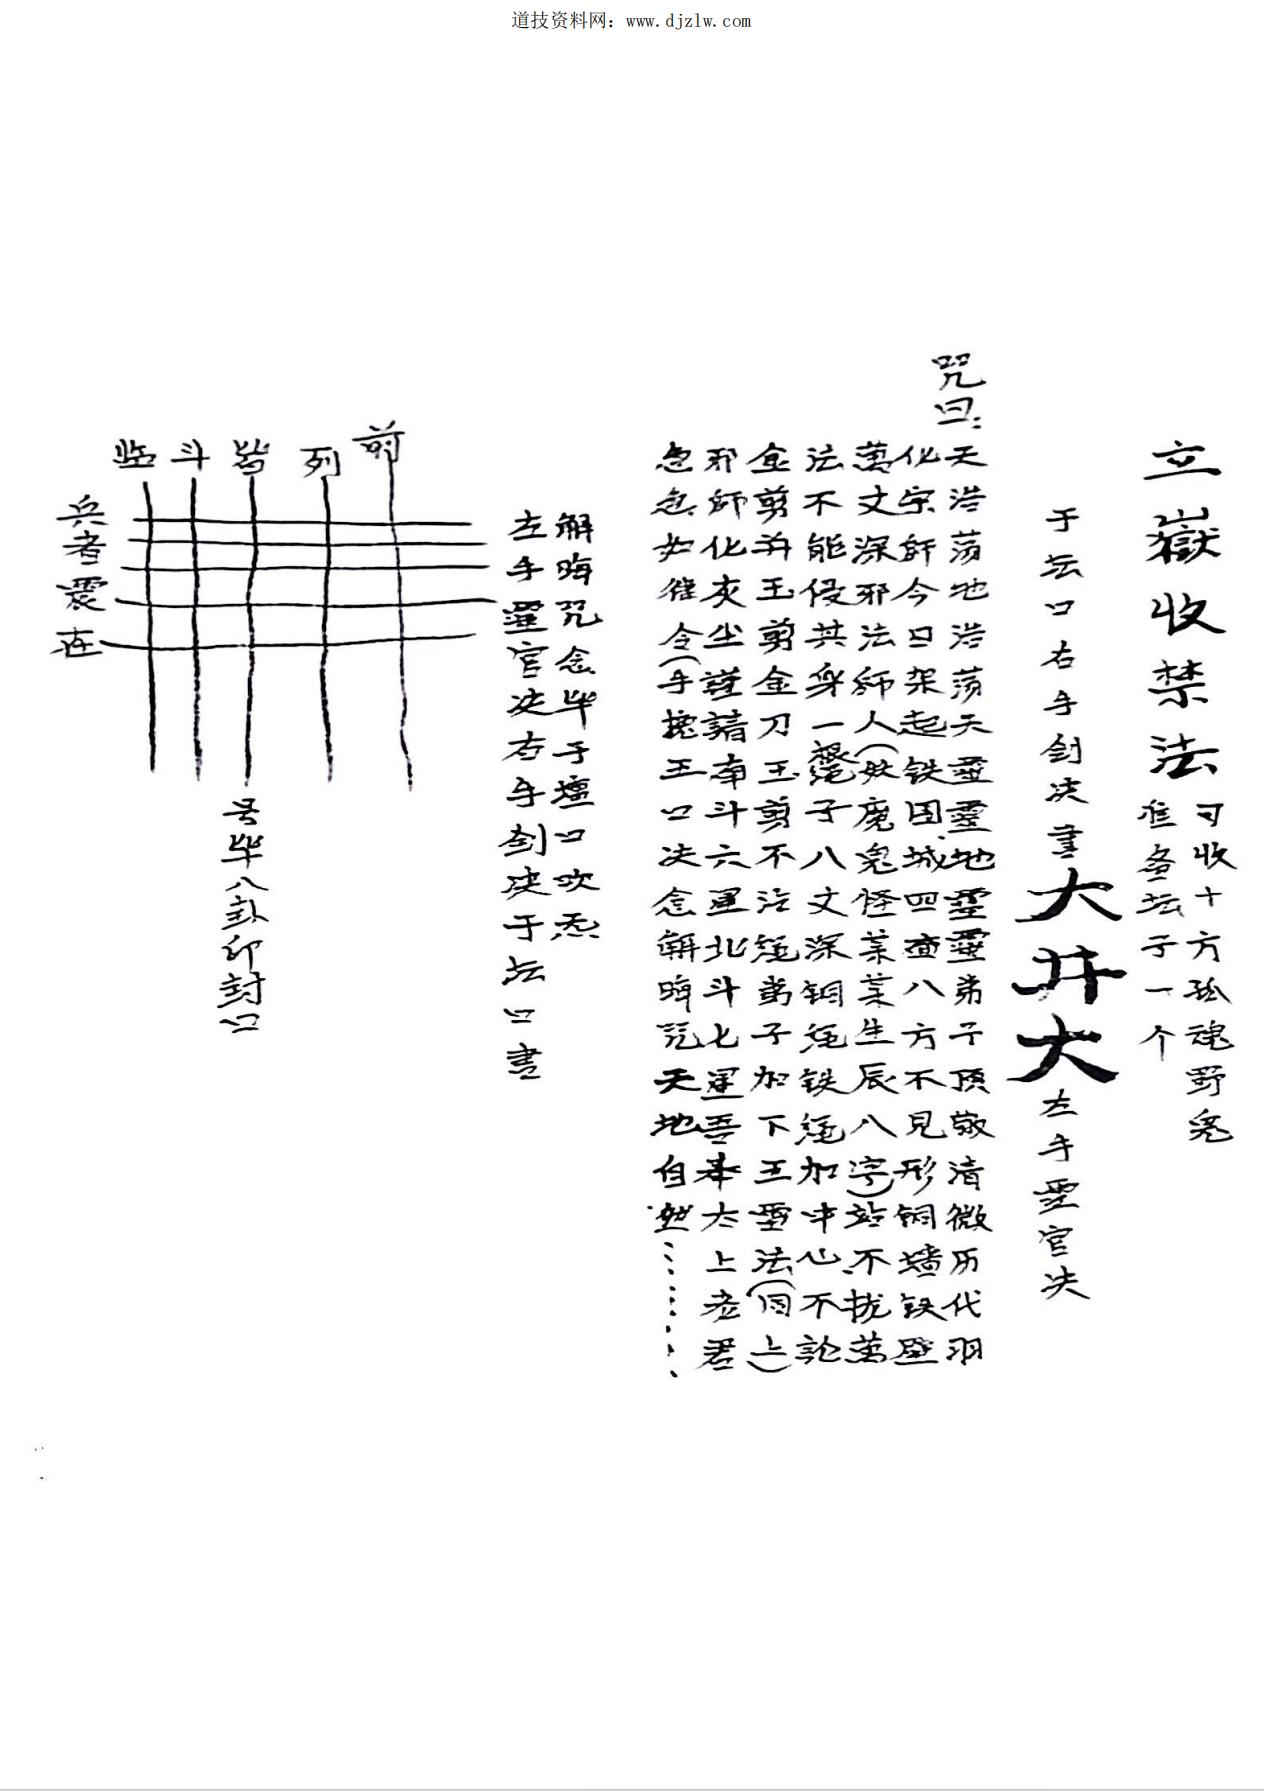 道技资料网：www.djzlw.com
立嶽收禁法
可收十方孤魂野鬼
准备坛子一个
于坛口右手剑决書大井大左手霊官决
咒曰：
天浩荡地浩荡天霊霊地霊霊弟子顶敬清微历代羽
化宗師今日架起铁围城四面八方不見形铜墙铁壁
萬丈深邪法師人（妖魔鬼怪某某生辰八字）站不拢萬
法不能侵其身一盤绳子八丈深铜绳铁绳加中心不論
金剪并玉剪金刀玉剪不沾绳弟子加下五雷法（同上）
邪師化灰尘謹請南斗六星北斗七星吾奉太上老君
急急如催令（手挽王口决念解晦咒天地自然……
解晦咒念毕于壇口吹炁
左手霊官决右手剑决于坛口書
临斗皆列前
兵者震在
号毕八卦印封口